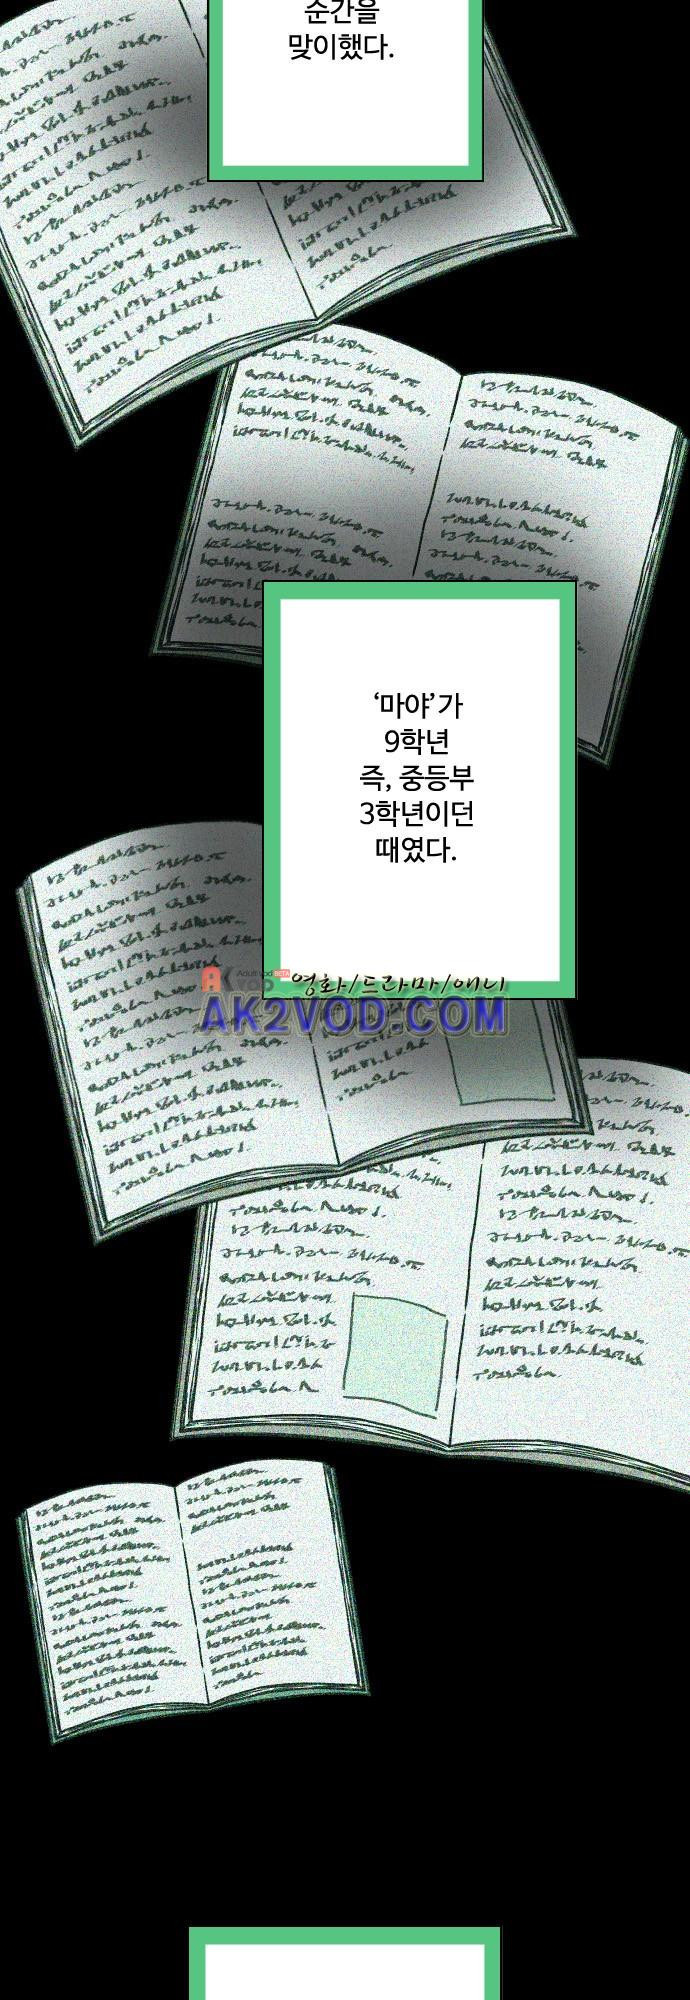 순간을
맞이했다.
‘마야’가
9학년
즉, 중등부
3학년이던
때였다.
AK VOD Adult vod BETA
영화/드라마/애니
AK2VOD.COM